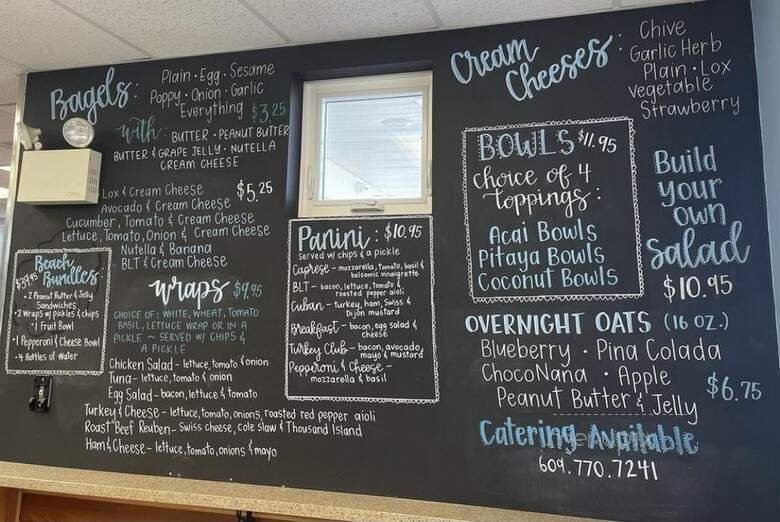 Bagels:
Plain · Egg · Sesame
Poppy · Onion · Garlic
Everything $3.25
with: BUTTER · PEANUT BUTTER
BUTTER & GRAPE JELLY · NUTELLA
CREAM CHEESE
Lox & Cream Cheese $5.25
Avocado & Cream Cheese
Cucumber, Tomato & Cream Cheese
Lettuce, Tomato, Onion & Cream Cheese
Nutella & Banana
BLT & Cream Cheese
Beach
Bundles:
$39.95
· 2 Peanut Butter & Jelly
Sandwiches
· 2 Wraps w/ pickles & chips
· 1 Fruit Bowl
· 1 Pepperoni & Cheese Bowl
· 4 Bottles of Water
wraps $9.95
CHOICE OF: WHITE, WHEAT, TOMATO
BASIL, LETTUCE WRAP OR IN A
PICKLE ~ SERVED W/ CHIPS &
A PICKLE
Chicken Salad - lettuce, tomato & onion
Tuna - lettuce, tomato & onion
Egg Salad - bacon, lettuce & tomato
Turkey & Cheese - lettuce, tomato, onions, roasted red pepper aioli
Roast Beef Reuben - Swiss cheese, cole slaw & Thousand Island
Ham & Cheese - lettuce, tomato, onions & mayo
Panini: $10.95
Served w/ chips & a pickle
Caprese - mozzarella, tomato, basil &
balsamic vinaigrette
BLT - bacon, lettuce, tomato &
roasted pepper aioli
Cuban - turkey, ham, Swiss &
Dijon mustard
Breakfast - bacon, egg salad &
cheese
Turkey Club - bacon, avocado,
mayo & mustard
Pepperoni & Cheese -
mozzarella & basil
Cream
Cheeses:
Chive
Garlic Herb
Plain · Lox
Vegetable
Strawberry
BOWLS $11.95
choice of 4
toppings:
Acai Bowls
Pitaya Bowls
Coconut Bowls
Build
your
own
salad
$10.95
OVERNIGHT OATS (16 OZ.)
Blueberry · Pina Colada
ChocoNana · Apple
Peanut Butter & Jelly
$6.75
Catering Available
609.770.7241